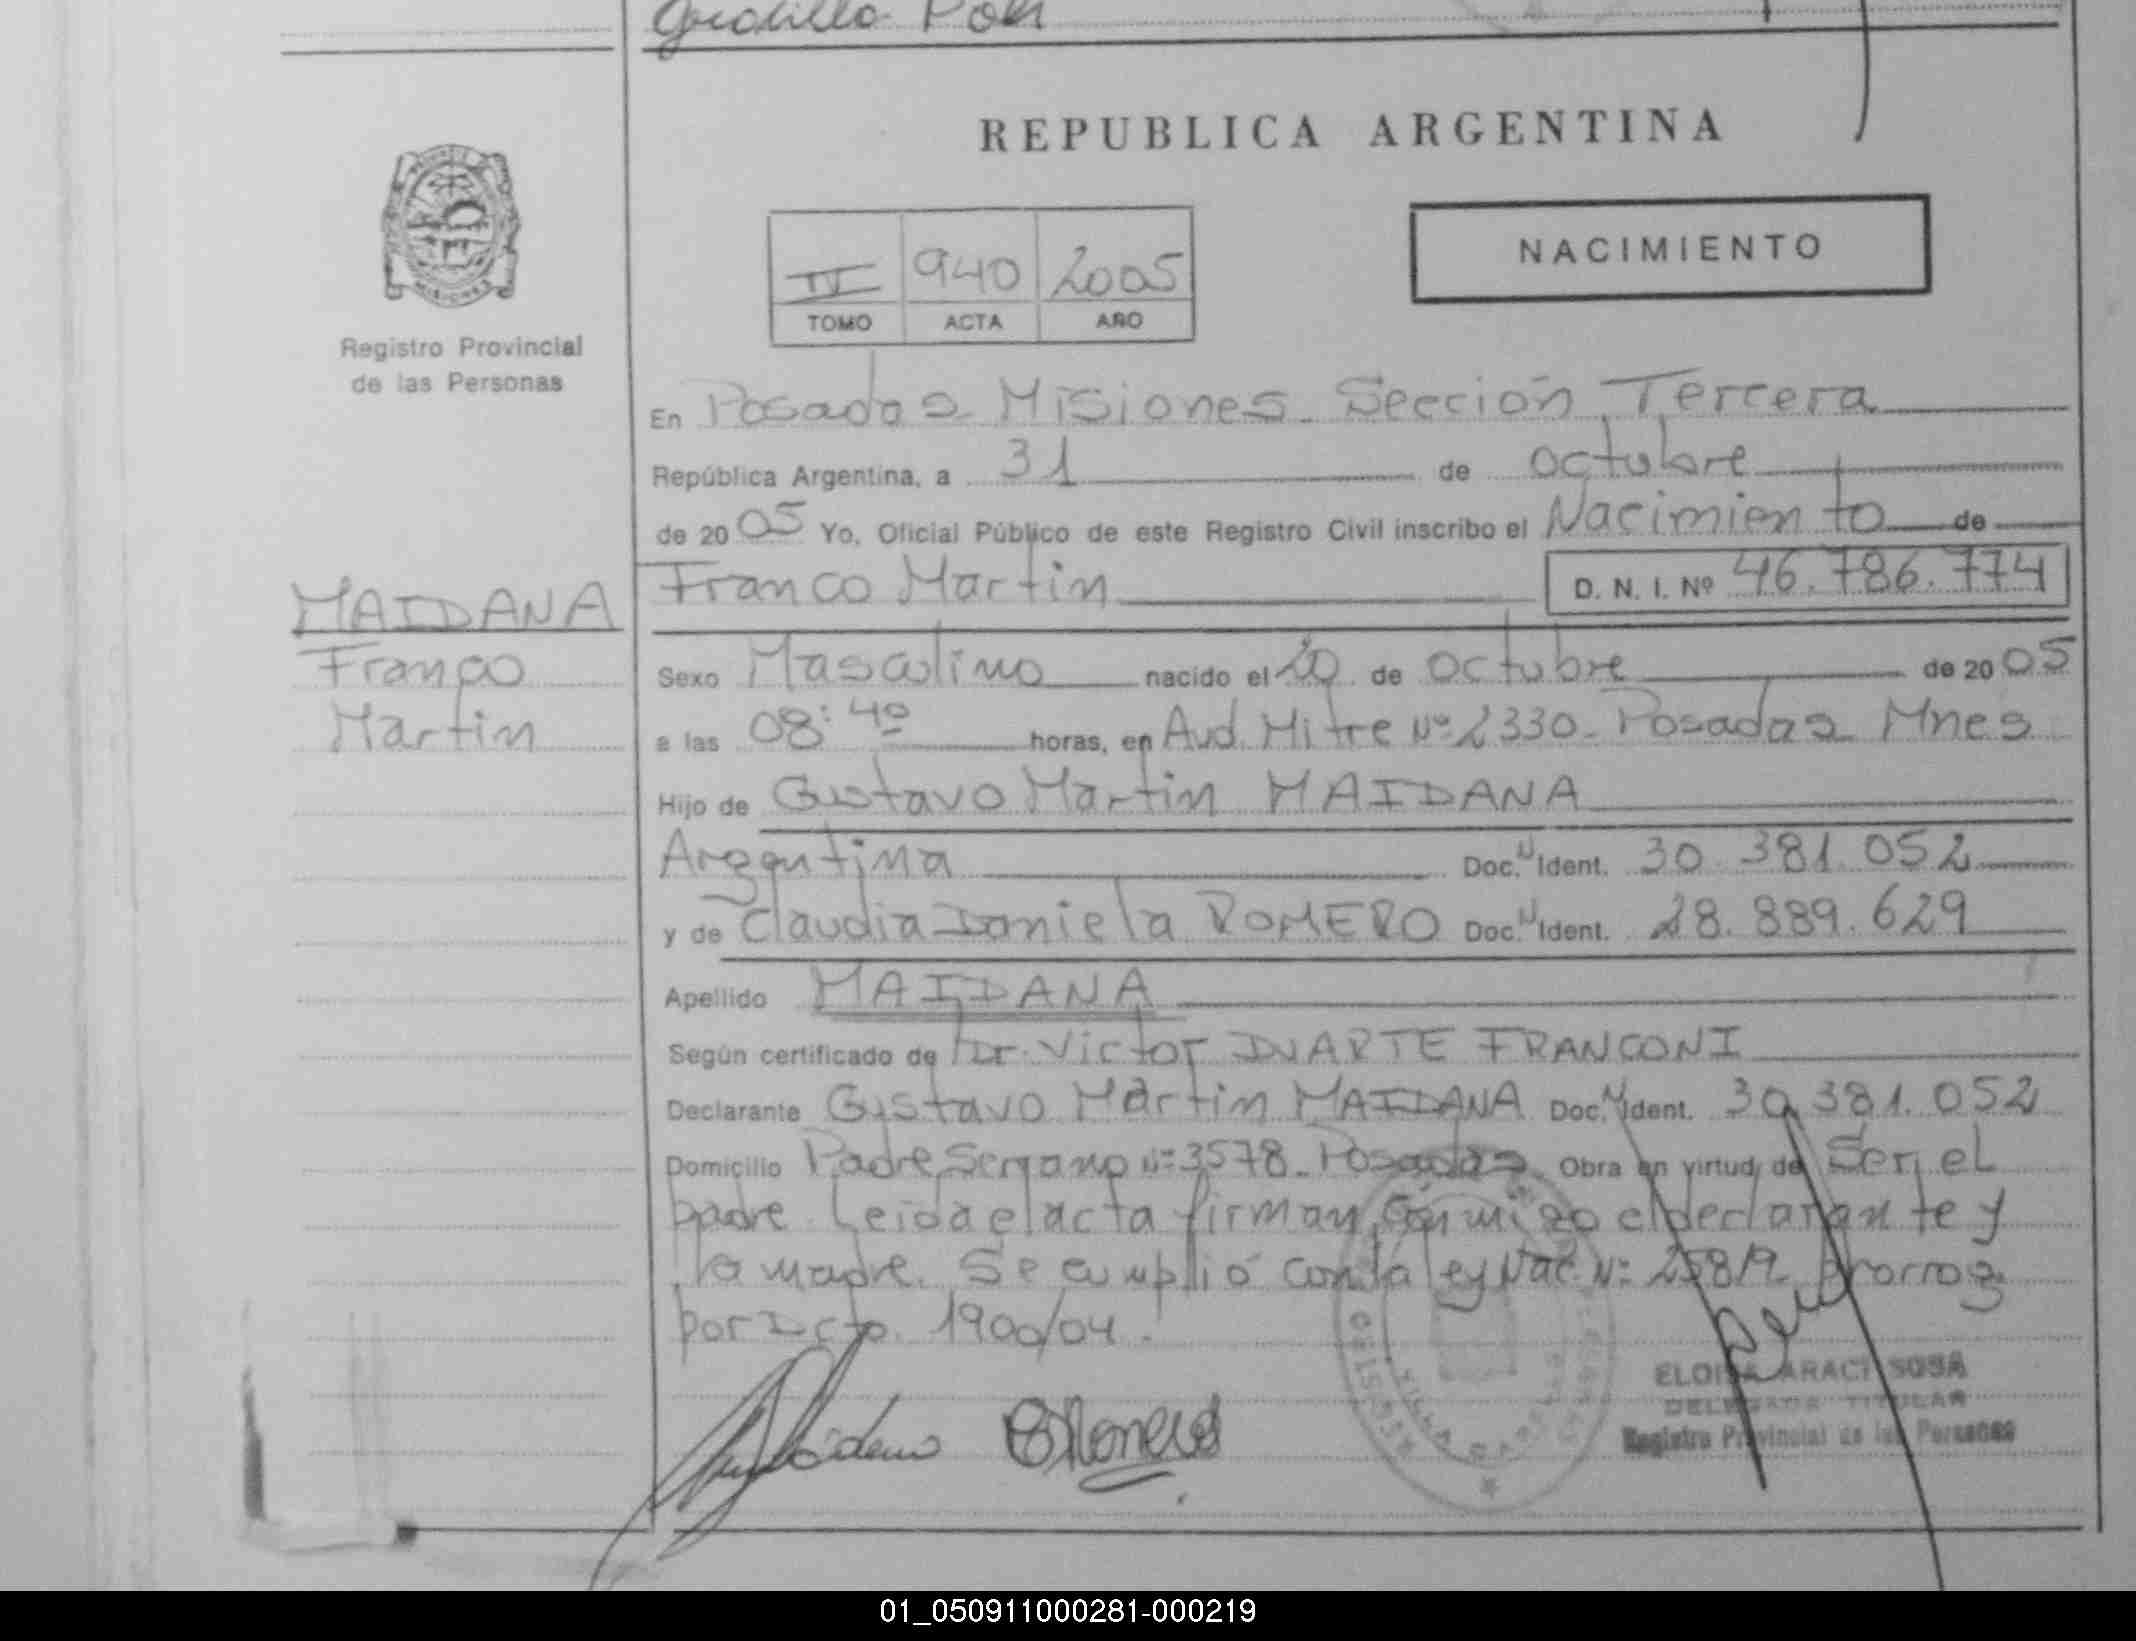 REPUBLICA ARGENTINA
NACIMIENTO
IV 940 2005
TOMO ACTA AÑO
MISIONES
Registro Provincial
de las Personas
En Posadas Misiones. Sección Tercera
República Argentina, a 31 de octubre
de 20 05 Yo, Oficial Público de este Registro Civil inscribo el Nacimiento de
MAIDANA
Franco
Martin
Franco Martin D. N. I. Nº 46.786.774
Sexo Masculino nacido el 20 de octubre de 20 05
a las 08:40 horas, en Avd. Mitre Nº 2330 - Posadas Mnes
Hijo de Gustavo Martin MAIDANA
Argentina Doc. N Ident. 30.381.052
y de Claudia Daniela ROMERO Doc. N Ident. 28.889.629
Apellido MAIDANA
Según certificado de Dr. Victor DUARTE FRANCONI
Declarante Gustavo Martin MAIDANA Doc. N Ident. 30.381.052
Domicilio Padre Serrano Nº 3578 - Posadas Obra en virtud de Ser el
padre. Leida el acta firman conmigo el declarante y
la madre. Se cumplió con la ley Nac. Nº 25819 prorrog
por Dcto. 1900/04.
ELOISA ARACI SOSA
DELEGADA TITULAR
Registro Provincial de las Personas
01_050911000281-000219